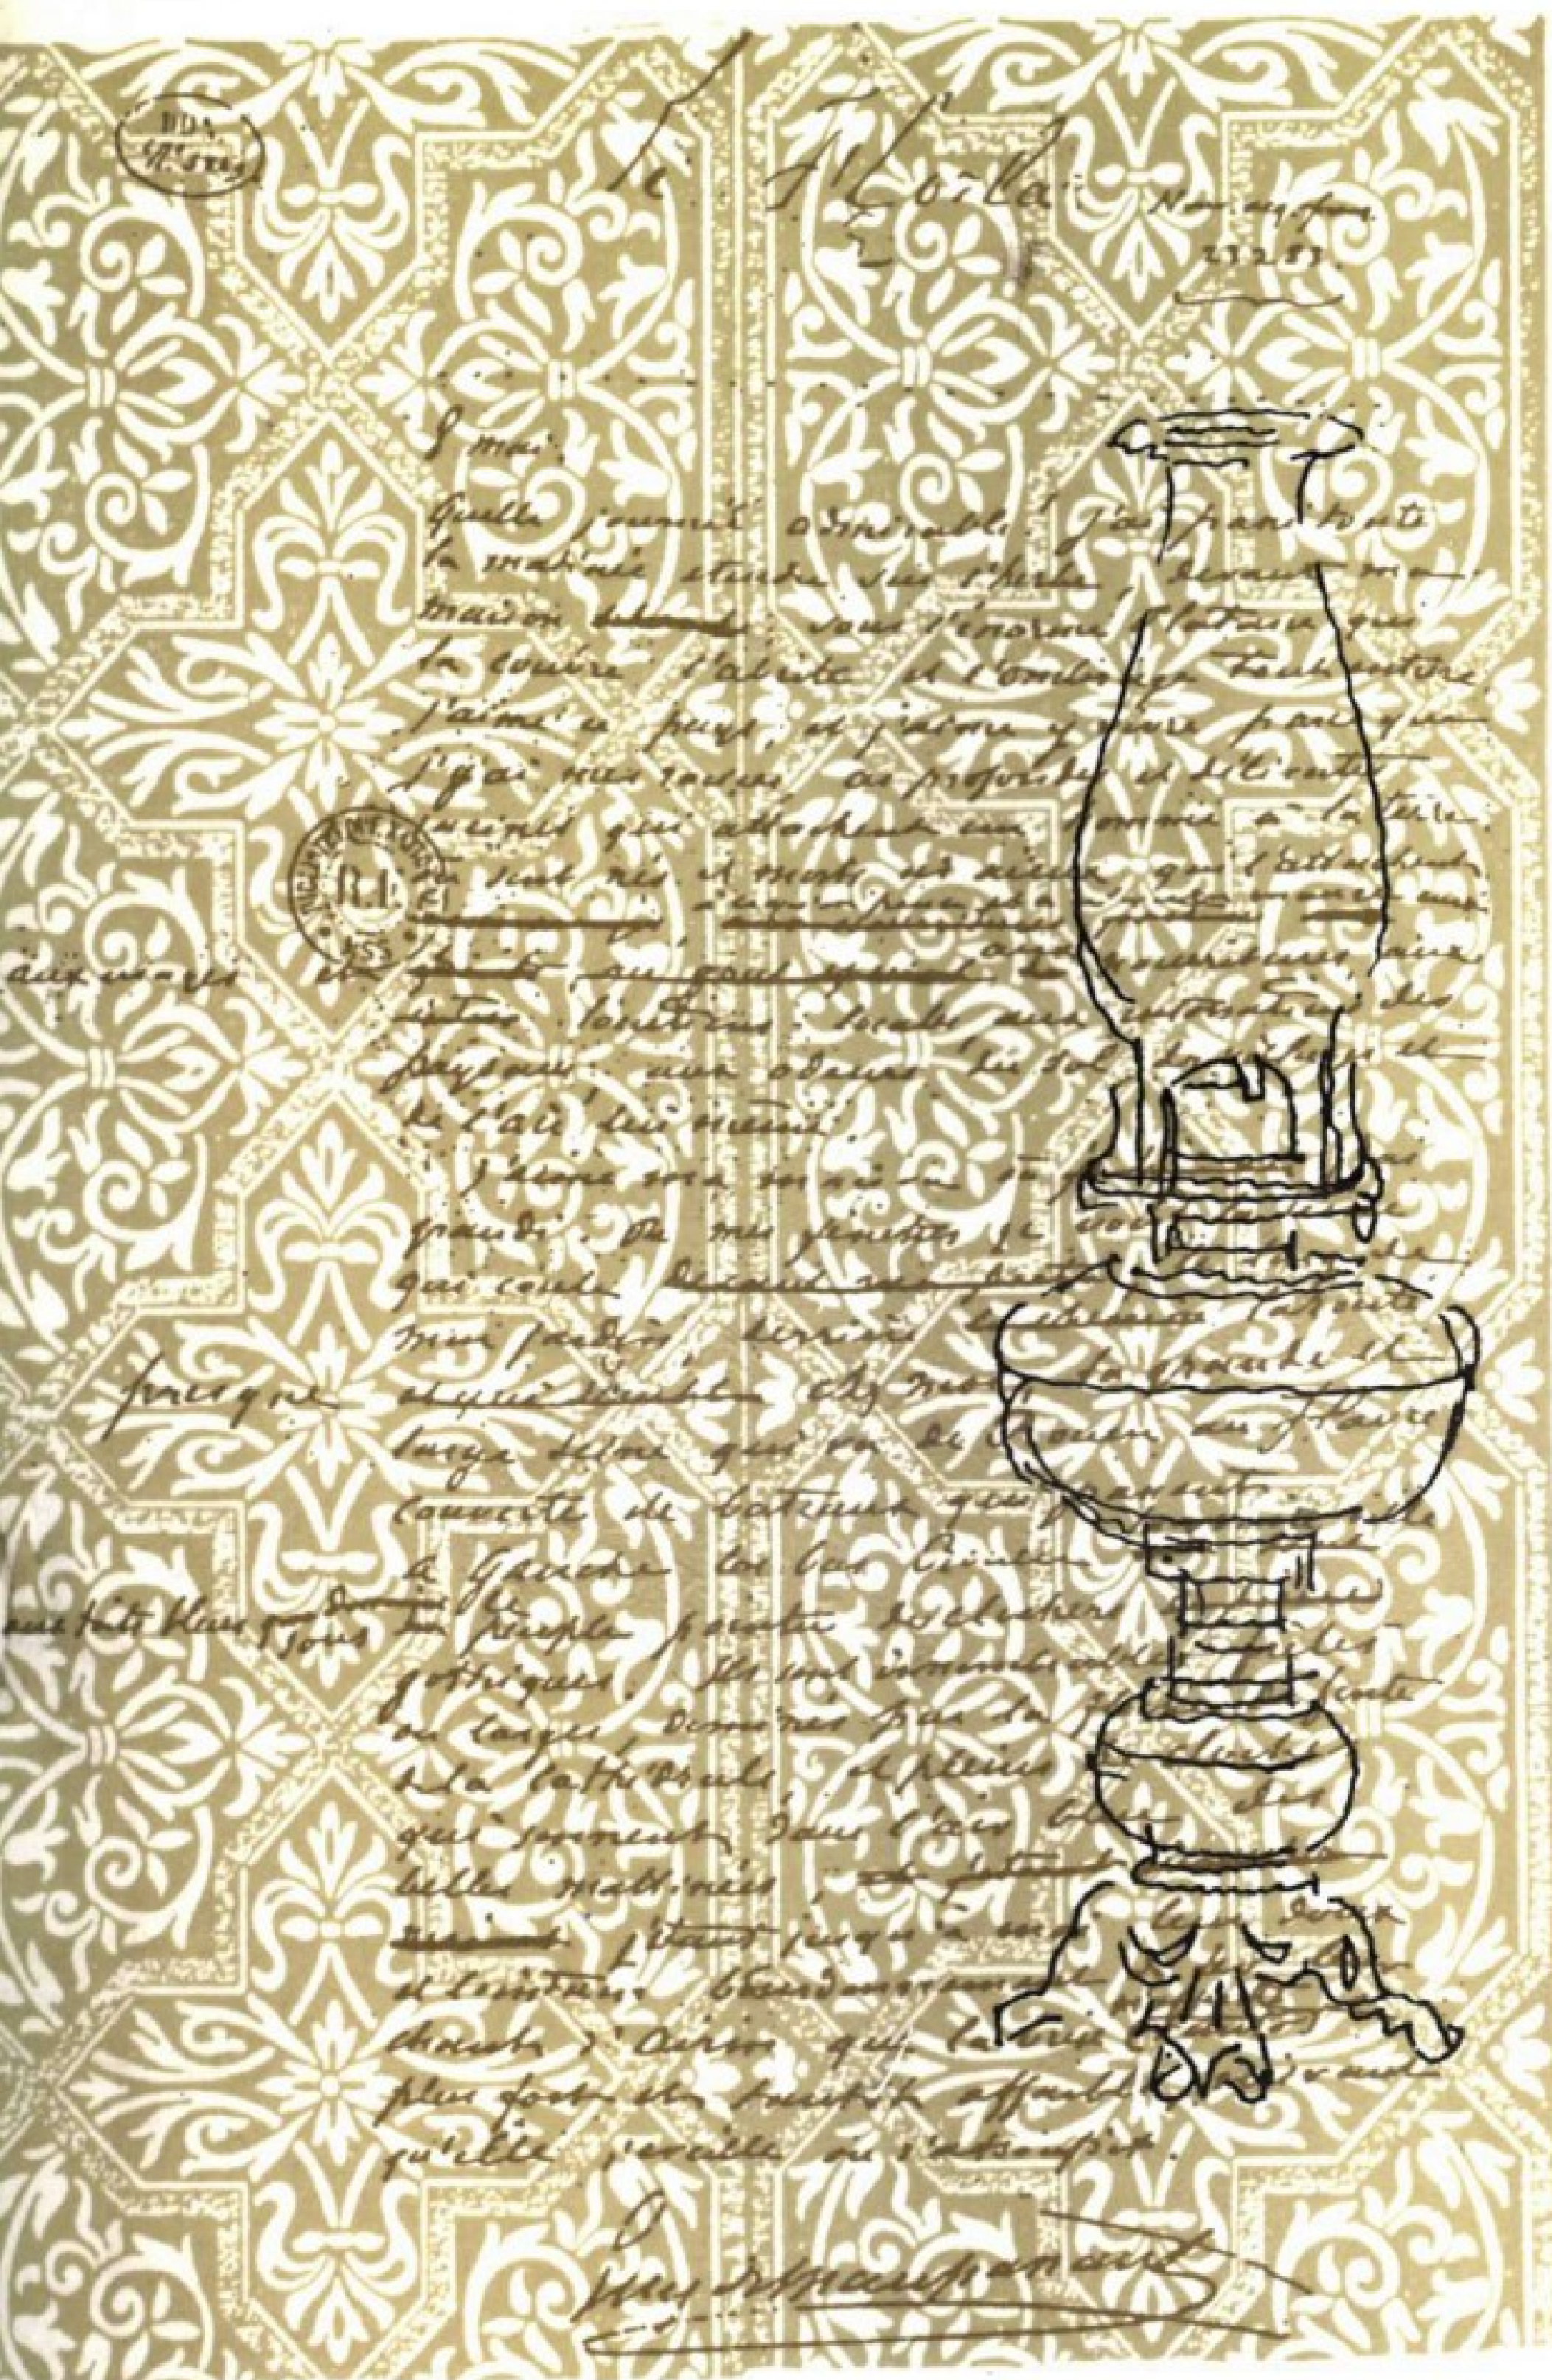 Le Horla
Nouv. acq. fr.
23283
8 mai.
Quelle journée admirable ! J'ai passé toute
la matinée étendu sur l'herbe, devant ma
maison sous l'énorme platane qui
la couvre l'abrite et l'ombrage tout entière
J'aime ce pays, et j'aime y vivre parce que
j'y ai mes racines, ces profondes et délicates
racines qui attachent un homme à la terre
où sont nés et morts ses aïeux, qui l'attachent
à ce qu'on pense et à ce qu'on mange
aux usages et aux nourritures, aux
locutions locales aux intonations des
paysans, aux odeurs du sol, des villages et
de l'air lui-même.
J'aime ma maison où j'ai
grandi. De mes fenêtres je vois la Seine
qui coule devant ma
mon jardin derrière la route
presque chez moi, la grande et
large Seine qui va de Rouen au Havre
couverte de bateaux qui passent.
à gauche là-bas
aux toits bleus sous le peuple pointu des clochers
gothiques. Ils sont innombrables, frêles
ou larges, dominés par la flèche de fonte
de la cathédrale, et pleins de cloches
qui sonnent dans l'air bleu des
belles matinées,
jetant jusqu'à moi leur doux
et lointain bourdonnement
chant d'airain que la brise
plus fort et tantôt affaibli suivant
qu'elle s'éveille ou s'assoupit.
Guy de Maupassant